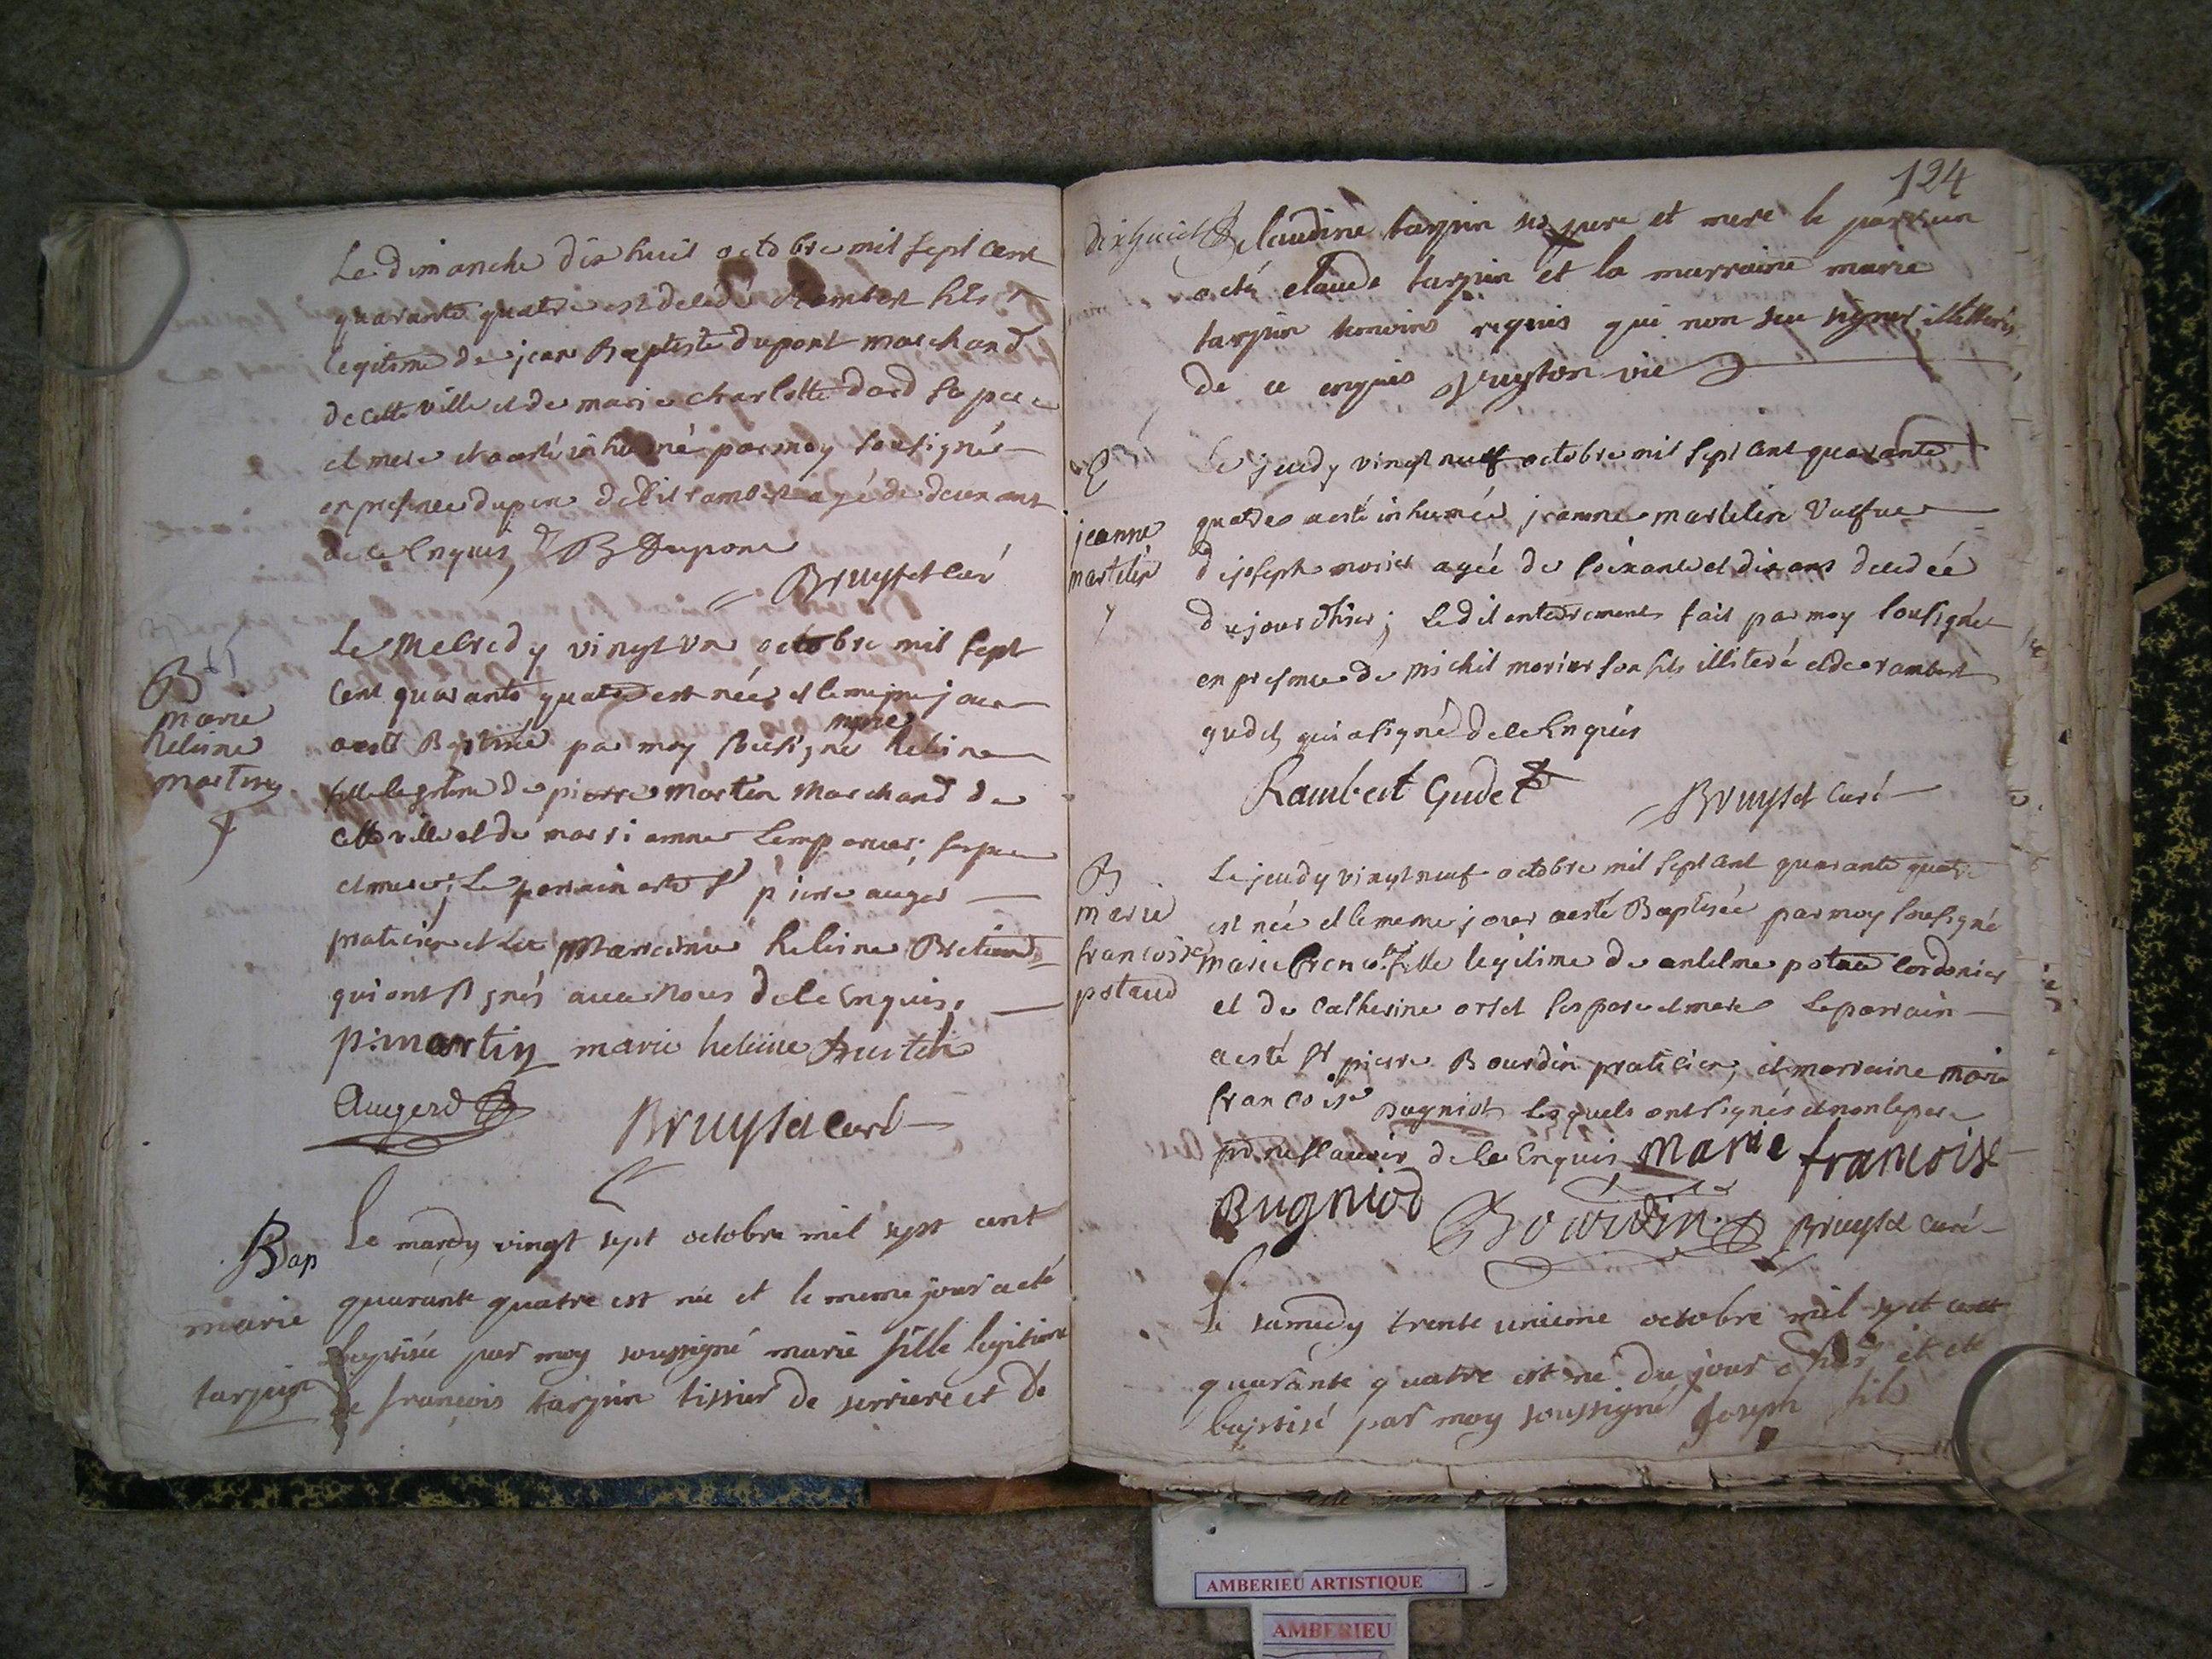 Le dimanche dix huit octobre mil sept cent
quarante quatre est decedé Rambert fils
legitime de jean Baptiste dupont marchand
de cette ville et de marie charlotte dard ses pere
et mere et a esté inhumé par moy sousigné
en presence du pere dedit rambert agé de deux ans
de ce Enquis JB Dupont
Bruyset curé
B
marie
heleine
martin
Le Mecredy vingt un octobre mil sept
cent quarante quatre est née et le mesme jour
a esté Baptisée par moy sousigné marie heleine
fille legitime de pierre Martin Marchand de
cette ville et de marianne Lempereur, ses pere
et mere; Le parrain esté sr pierre auger
praticien et La Marraine heleine
qui ont signés avec Nous de ce Enquis.
p: martin marie heleine
Augerd
Bruyset curé
Bap
marie
tarpin
Le mardy vingt sept octobre mil sept cent
quarante quatre est née et le meme jour a eté
baptisée par moy soussigné marie fille legitime
de françois tarpin tissier de serriere et de
124
claudine tarpin ses pere et mere le parrain
a eté claude tarpin et la marraine marie
tarpin temoins requis qui non seu signer illitterés
de ce enquis Vuyton vic
E
jeanne
martelin
Le jeudy vingt neuf octobre mil sept cent quarante
quatre a esté inhumée jeanne martelin Vuefve
de joseph morier agée de soixante et dix ans decedée
du jour d'hier; Ledit enterrement fait par moy sousigné
en presence de Michel morier son fils illiteré et de rambert
gudet qui a signé de ce Enquis
Rambert Gudet Bruyset curé
B
marie
francoise
potaud
Le jeudy vingt neuf octobre mil sept cent quarante quatre
est née et le meme jour a esté Baptisée par moy sousigné
marie francoise fille legitime de antelme potaud cordonier
et de Catherine orset ses pere et mere Le parrain
a esté sr pierre Bourdin praticien, et marraine marie
francoise Bugniod lesquels ont signés et non le pere
pr ne scavoir de ce Enquis Marie francoise
Bugniod Bourdin Bruyset curé
Le samedy trente unieme octobre mil sept cent
quarante quatre est né du jour d'hier et eté
baptisé par moy soussigné joseph fils
AMBERIEU ARTISTIQUE
AMBERIEU